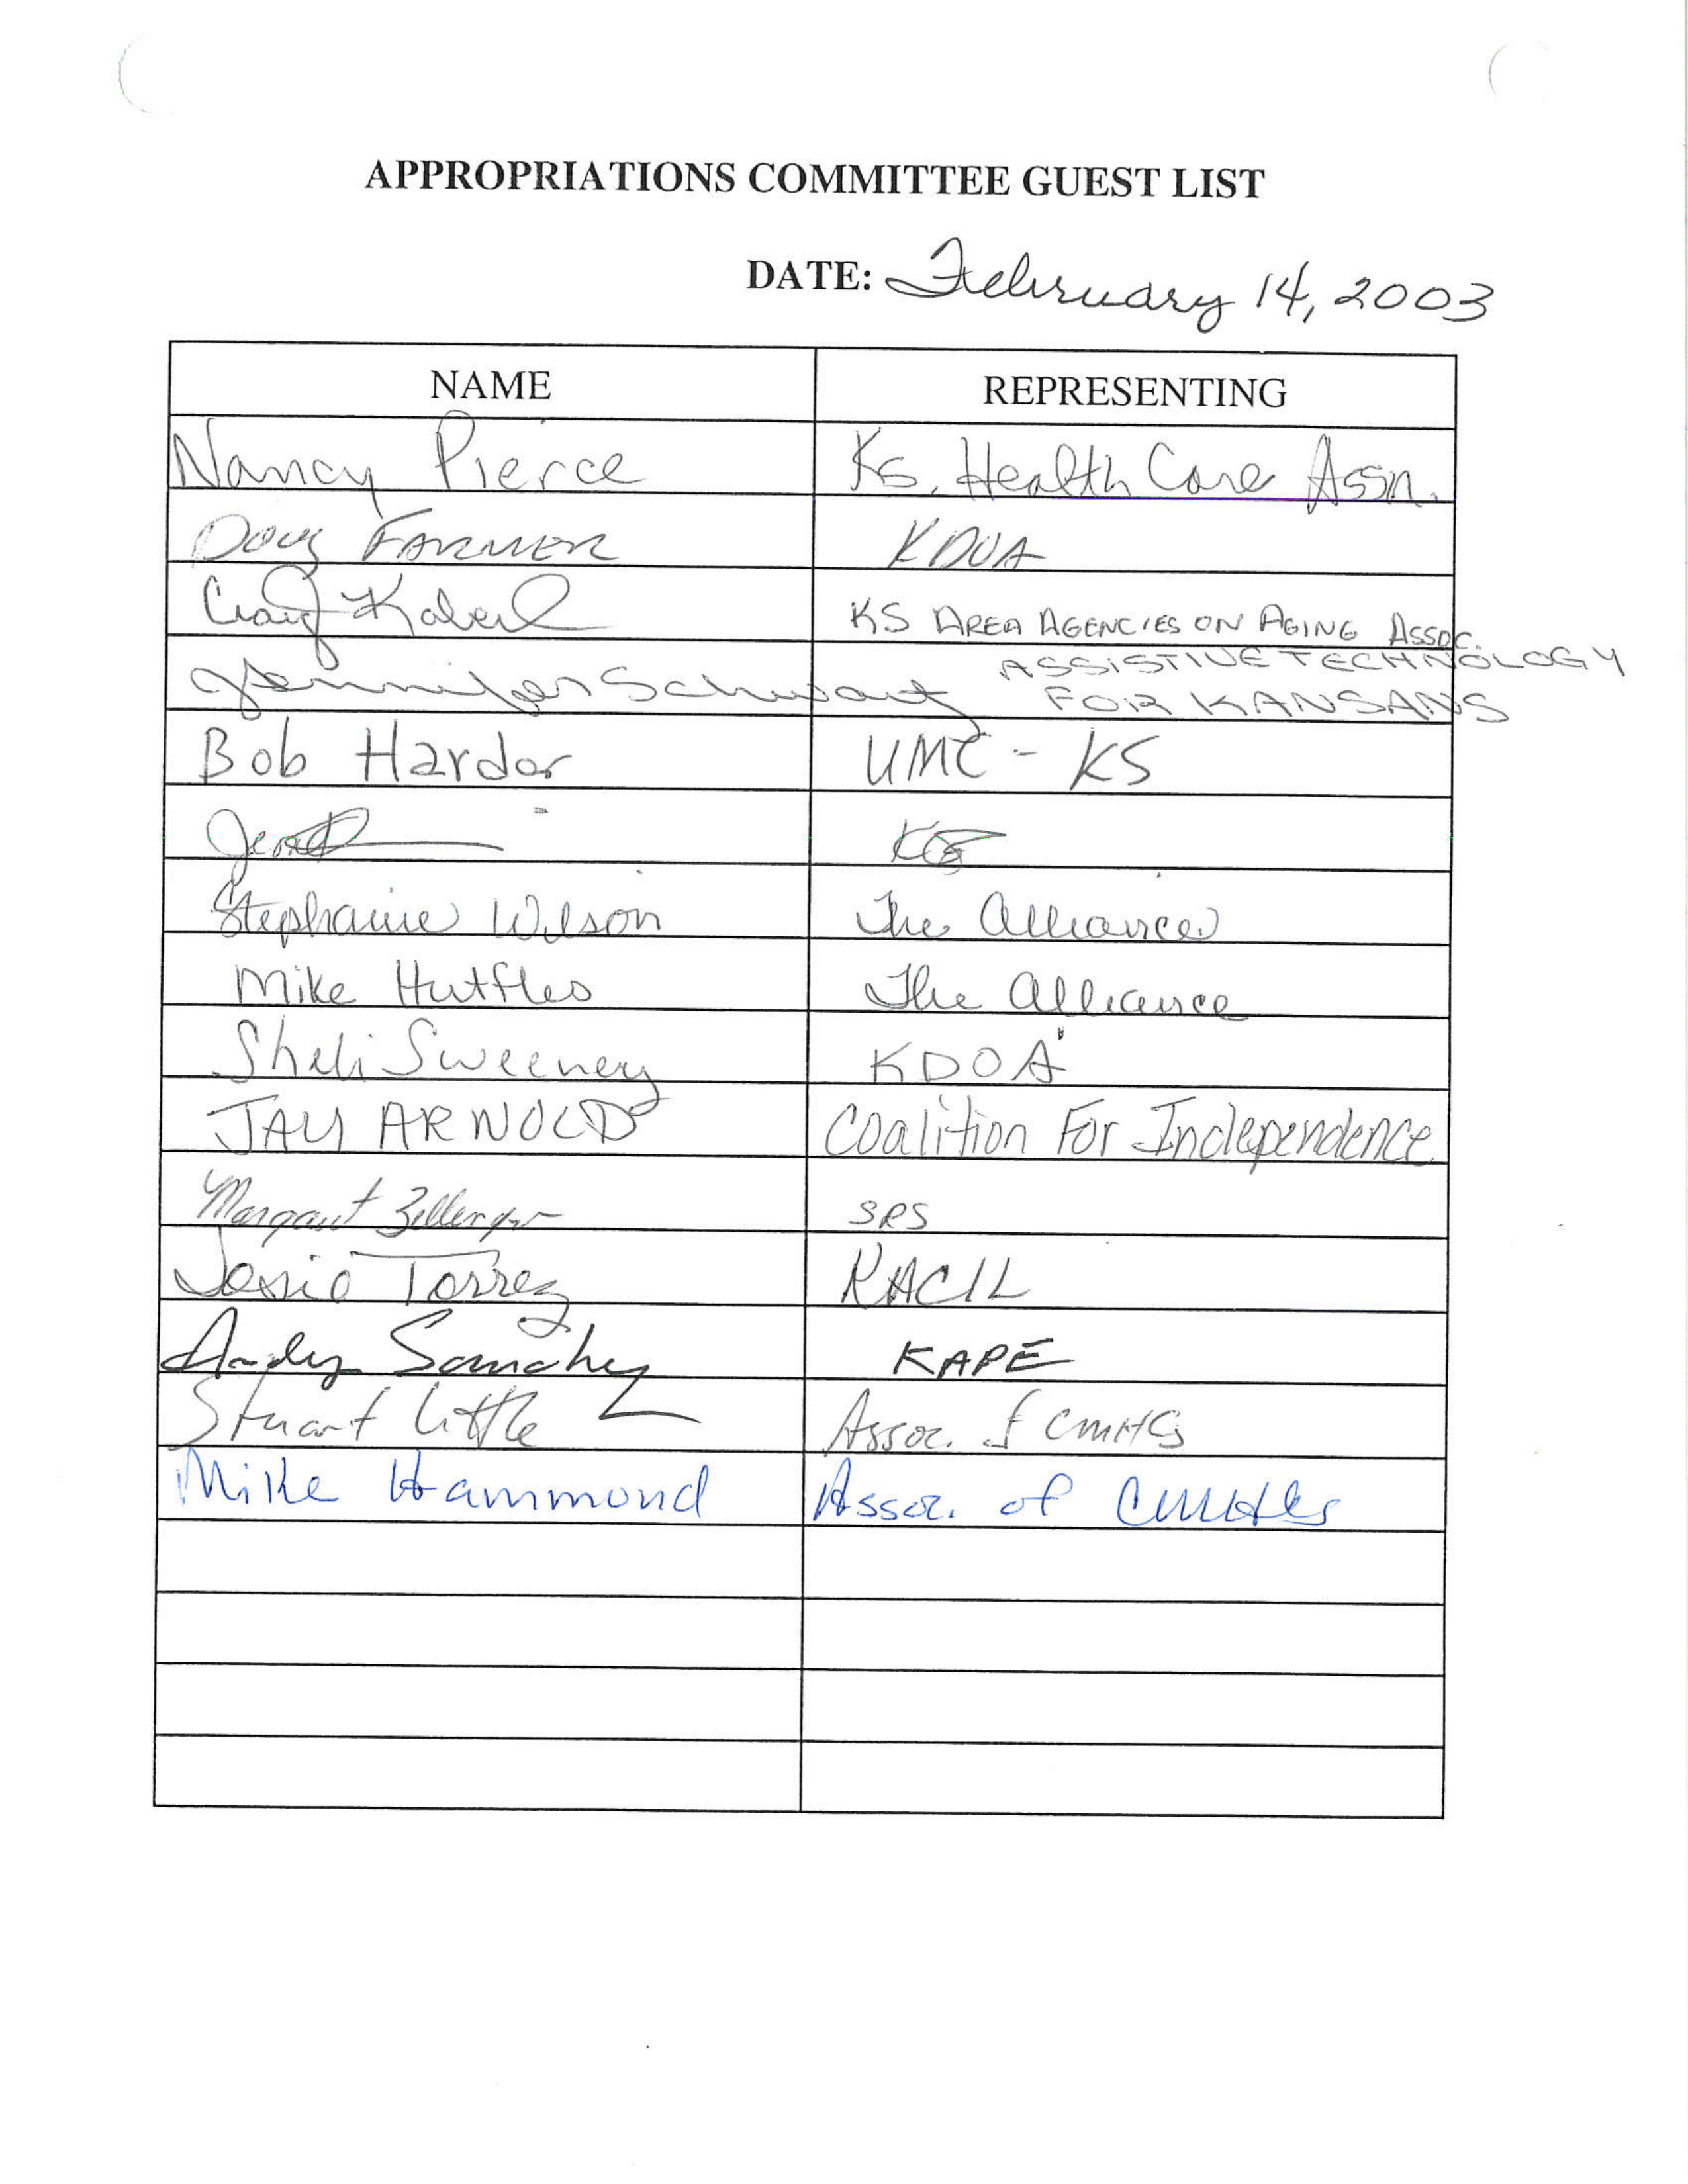 APPROPRIATIONS COMMITTEE GUEST LIST
DATE: February 14, 2003
NAME REPRESENTING
Nancy Pierce Ks. Health Care Assn.
Doug FARMER KDOA
Craig Kaberl KS AREA AGENCIES ON AGING ASSOC.
Jennifer Schwartz ASSISTIVE TECHNOLOGY
FOR KANSANS
Bob Harder UMC - KS
Stephanie Wilson The Alliance
Mike Huttles The Alliance
Sheli Sweeney KDOA
JAY ARNOLD Coalition For Independence
Margaret SRS
Torrez KACIL
Andy Sanchez KAPE
Stuart Little Assoc. of CMHCs
Mike Hammond Assoc. of CMHCs